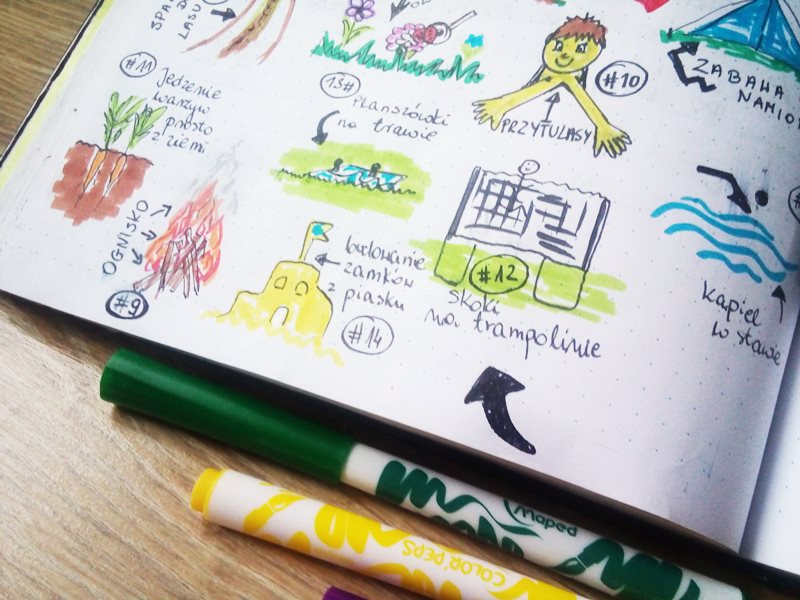 LASU
#11
Jedzenie
warzyw
prosto
z ziemi
13#
Planszówki
na trawie
#10
PRZYTULASY
ZABAWA
OGNISKO
#9
budowanie
zamków
z
piasku
#14
#12
skoki
na trampolinie
kąpiel
w stawie
maped
COLOR'PEPS